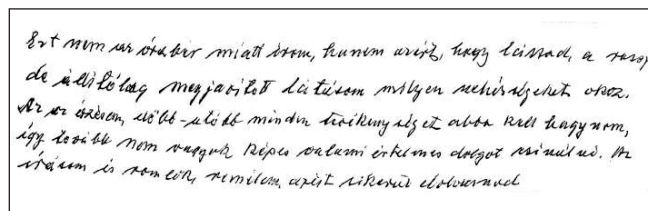 Ezt nem az órabér miatt írom, hanem azért, hogy lássad, a rossz,
de állítólag megjavított látásom milyen nehézségeket okoz.
Az az érzésem, előbb-utóbb minden tevékenységet abba kell hagynom,
így tovább nem vagyok képes valami értelmes dolgot csinálni. Az
írásom is romlik, remélem, azért sikerül elolvasnod